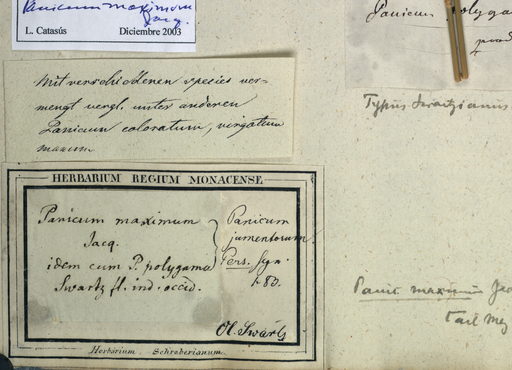 Panicum maximum
Jacq.
L. Catasús Diciembre 2003
Panicum polyga
Typus Swartzianus
Mit verschiedenen species ver-
mengt vergl. unter anderen
Panicum coloratum, virgatum
maxum
HERBARIUM REGIUM MONACENSE
Panicum maximum
Jacq.
idem cum P. polygamo
Swartz fl. ind. occid.
Panicum
jumentorum.
Pers. Syn.
1. 83.
Ol. Swartz
Herbarium Schreberianum.
Panic maximum Jac